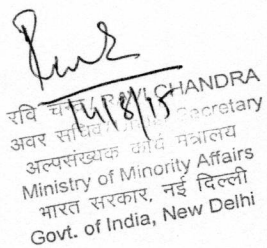 14/8/15
रवि चन्द्र / RAVI CHANDRA
अवर सचिव / Secretary
अल्पसंख्यक कार्य मंत्रालय
Ministry of Minority Affairs
भारत सरकार, नई दिल्ली
Govt. of India, New Delhi